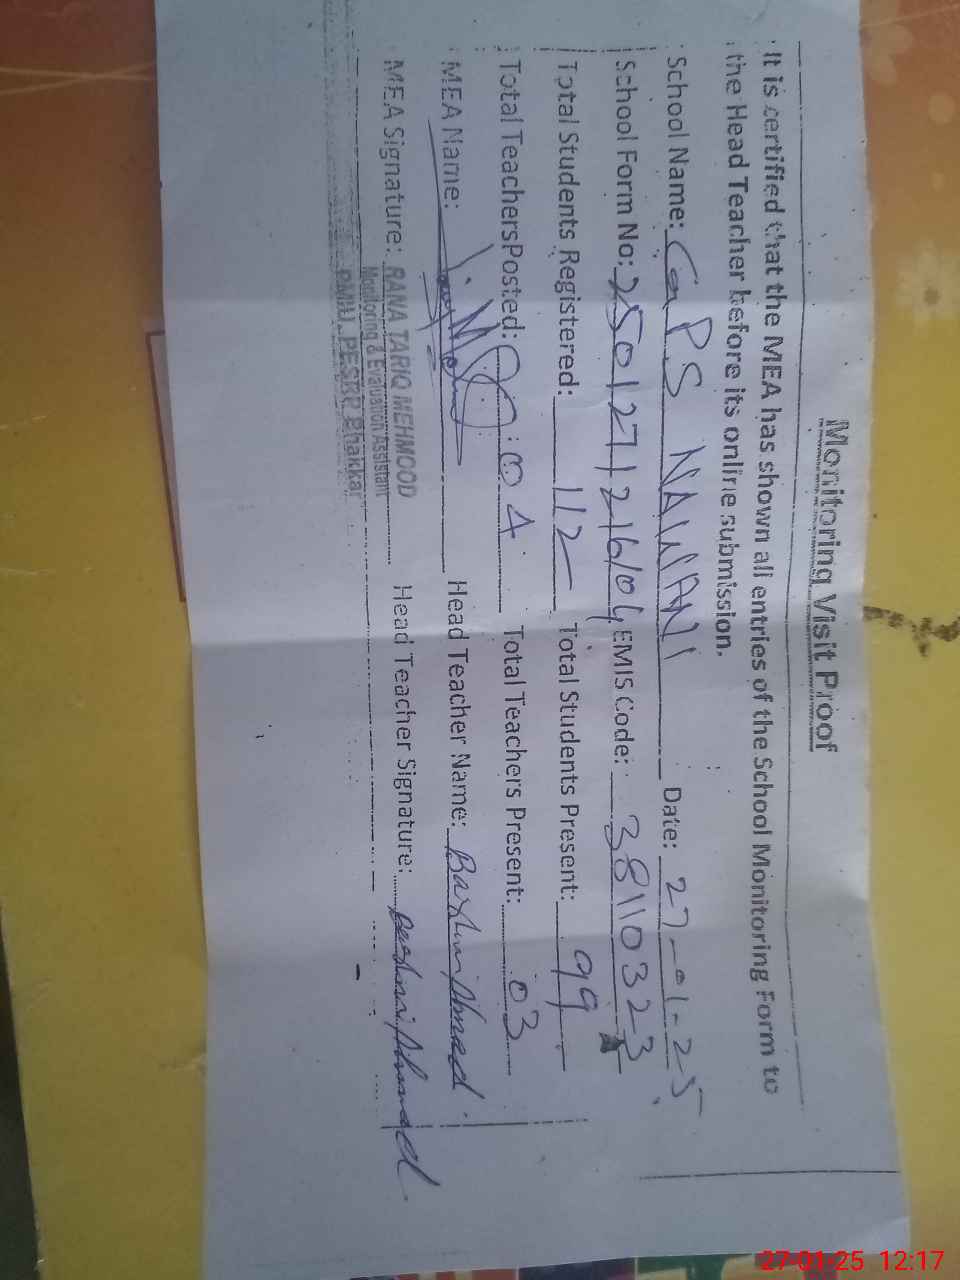 Monitoring Visit Proof
It is certified that the MEA has shown all entries of the School Monitoring Form to
the Head Teacher before its online submission.
School Name: GPS NAWANI Date: 27-01-25
School Form No: 2501271216104 EMIS Code: 38110323
Total Students Registered: 112 Total Students Present: 99
Total TeachersPosted: 04 Total Teachers Present: 03
MEA Name: Head Teacher Name: Ahmad
MEA Signature: RANA TARIQ MEHMOOD Head Teacher Signature: Ahmad
Monitoring & Evaluation Assistant
PMIU, PESRP Bhakkar
27-01-25 12:17